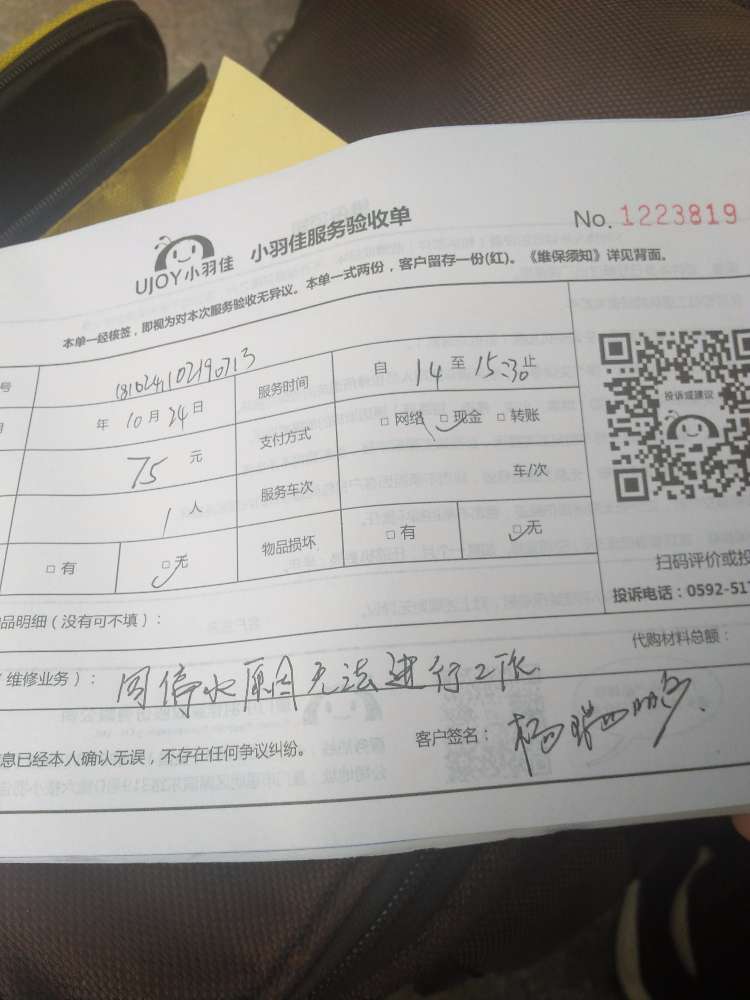 UJOY小羽佳 小羽佳服务验收单 No. 1223819
本单一经核签，即视为对本次服务验收无异议。本单一式两份，客户留存一份(红)。《维保须知》详见背面。
号 1810241102190713 服务时间 自 14 至 15:30 止
年 10 月 24 日 支付方式 □ 网络 □ 现金 □ 转账
75 元 服务车次 车/次
1 人 物品损坏 □ 有 □ 无
□ 有 □ 无
投诉或建议
扫码评价或投
投诉电话：0592-517
品明细（没有可不填）：
代购材料总额：
维修业务）： 因停水原因无法进行工作
息已经本人确认无误，不存在任何争议纠纷。 客户签名：